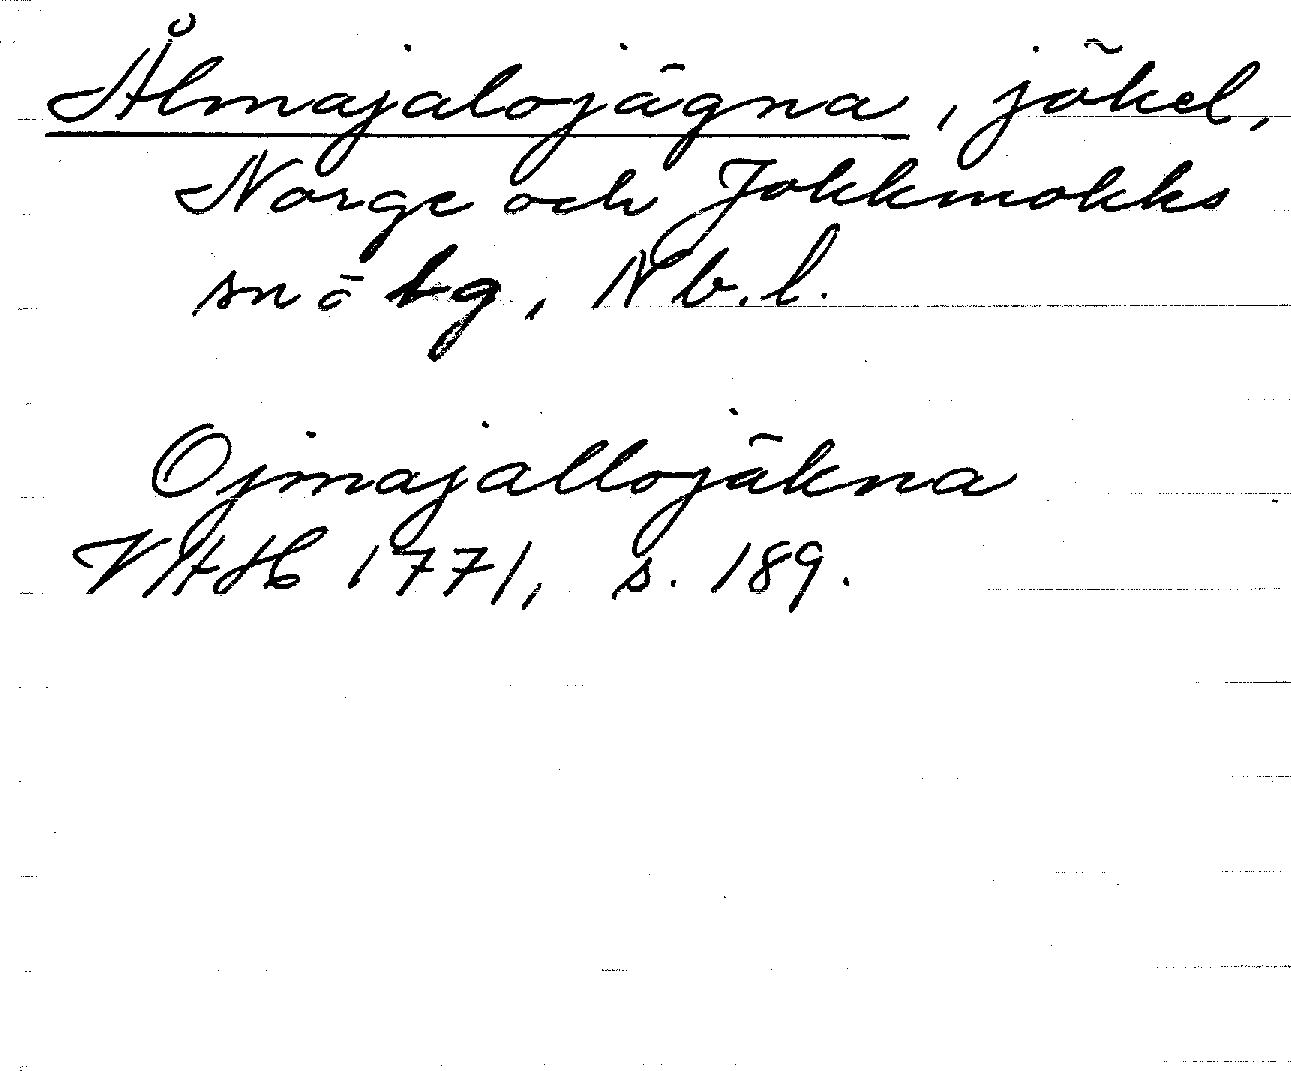 Ålmajalojägna, jökel,
Norge och Jokkmokks
sn o kg, Nb. l.
Ojmajallojäkna
VAH 1771, s. 189.